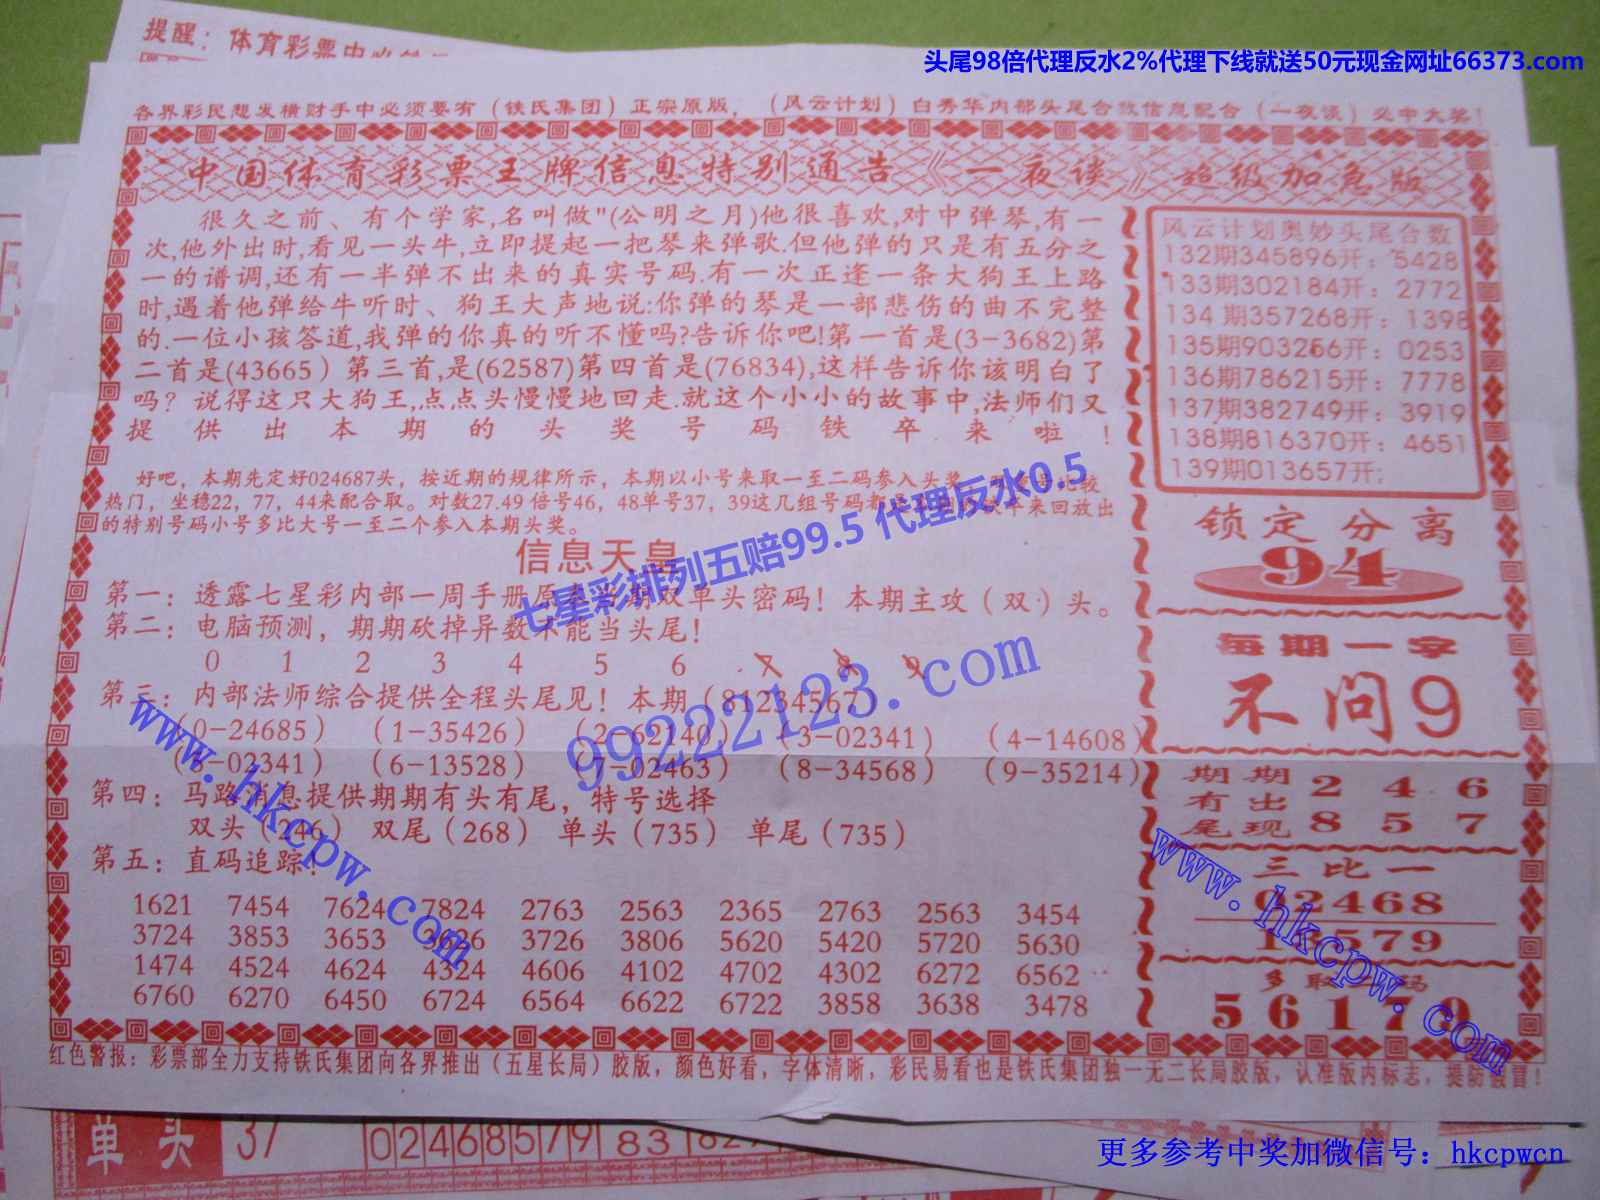 提醒：体育彩票中
头尾98倍代理反水2%代理下线就送50元现金网址66373.com
各界彩民想发横财手中必须要有（铁氏集团）正宗原版，（风云计划）白秀华内部头尾合数信息配合（一夜谈）必中大奖！
中国体育彩票王牌信息特别通告《一夜谈》超级加急版
很久之前、有个学家,名叫做"(公明之月)他很喜欢,对中弹琴,有一
次,他外出时,看见一头牛,立即提起一把琴来弹歌.但他弹的只是有五分之
一的谱调,还有一半弹不出来的真实号码.有一次正逢一条大狗王上路
时,遇着他弹给牛听时、狗王大声地说:你弹的琴是一部悲伤的曲不完整
的.一位小孩答道,我弹的你真的听不懂吗?告诉你吧!第一首是(3-3682)第
二首是(43665）第三首,是(62587)第四首是(76834),这样告诉你该明白了
吗？说得这只大狗王,点点头慢慢地回走.就这个小小的故事中,法师们又
提供出本期的头奖号码铁卒来啦！
好吧，本期先定好024687头，按近期的规律所示，本期以小号来取一至二码参入头奖
热门，坐稳22，77，44来配合取。对数27.49 倍号46，48单号37，39这几组号码都是 来回放出
的特别号码小号多比大号一至二个参入本期头奖。
信息天皇
七星彩排列五赔99.5 代理反水0.5
第一：透露七星彩内部一周手册原本当期双单头密码！本期主攻（双·）头。
第二：电脑预测，期期砍掉异数不能当头尾！
0 1 2 3 4 5 6 7 8 9
第三：内部法师综合提供全程头尾见！本期（81234567）
（0-24685） （1-35426） （2-62140） （3-02341） （4-14608）
（5-02341） （6-13528） （7-02463） （8-34568） （9-35214）
第四：马路消息提供期期有头有尾，特号选择
双头（246） 双尾（268） 单头（735） 单尾（735）
第五：直码追踪！
1621 7454 7624 7824 2763 2563 2365 2763 2563 3454
3724 3853 3653 3626 3726 3806 5620 5420 5720 5630
1474 4524 4624 4324 4606 4102 4702 4302 6272 6562
6760 6270 6450 6724 6564 6622 6722 3858 3638 3478
99222123.com
www.hkcpw.com
风云计划奥妙头尾合数
132期345896开：5428
133期302184开：2772
134 期357268开：1398
135期903256开：0253
136期786215开：7778
137期382749开：3919
138期816370开：4651
139期013657开;
锁定分离
94
每期一字
不问9
期期 2 4 6
有出
尾现 8 5 7
三比一
02468
1 579
多取 码
56179
www.hkcpw.com
红色警报：彩票部全力支持铁氏集团向各界推出（五星长局）胶版，颜色好看，字体清晰，彩民易看也是铁氏集团独一无二长局胶版，认准版内标志，提防假冒！
单头 37 02468579 83
更多参考中奖加微信号：hkcpwcn